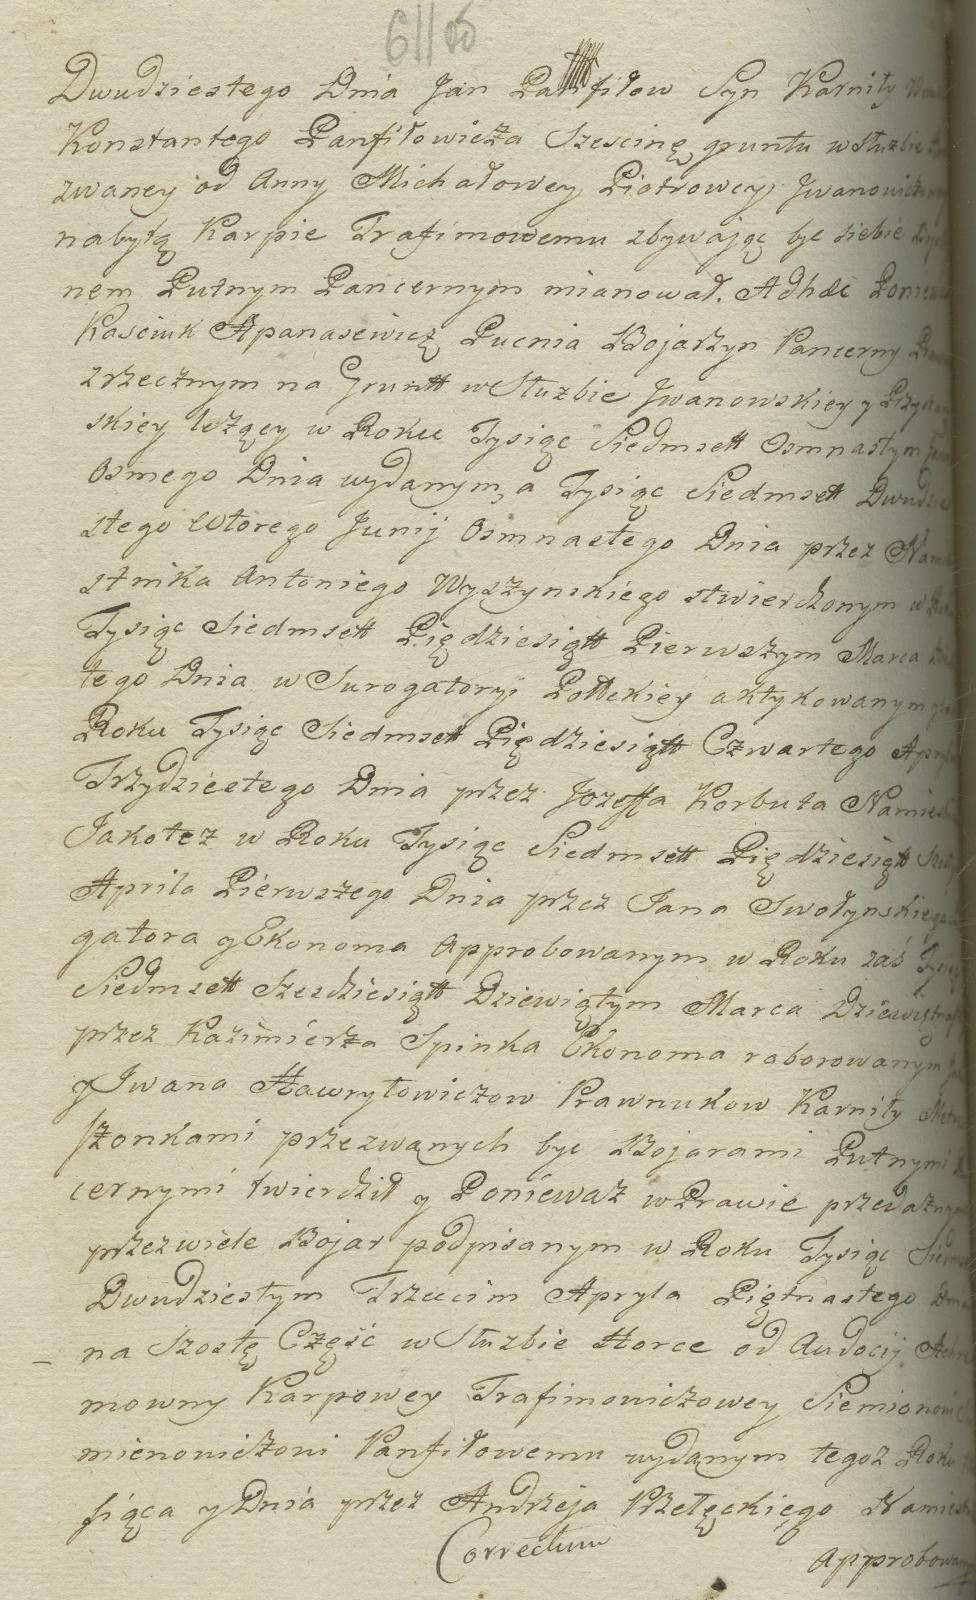 Dwudziestego Dnia Jan Panfiłow Syn Karniły
Konstantego Panfiłowicza Szescinę gruntu w Służbie
zwaney od Anny Michałowey Piotrowey Jwanowiczo
nabytą Karpie Trafimowemu zbywaiąc byc siebie
nem Putnym Pancernym mianował. Adhęc Poniew
Kasciuk Apanasewicz Pucnia Bojarzyn Pancerny
zrzecznym na Grunt w Służbie Jwanowskiey y
skiey leżący w Roku Tysiąc Siedmsett Osmnastym
Osmego Dnia wydanym, a Tysiąc Siedmsett Dwudzie
stego Wtorego Junij Osmnastego Dnia przez Namie
stnika Antoniego Wyszynskiego stwierdzonym w
Tysiąc Siedmsett Pięcdziesiątt Pierwszym Marca
tego Dnia w Surogatoryi Połockiey aktykowanym
Roku Tysiąc Siedmsett Pięcdziesiątt Czwartego Apryla
Trzydziestego Dnia przez Jozeffa Korbuta Namies
Jakoteż w Roku Tysiąc Siedmsett Pięcdziesiątt
Aprila Pierwszego Dnia przez Jana Swołynskiego
gatora y Ekonoma Approbowanym w Roku zaś Tysiąc
Siedmsett Szesdziesiątt Dziewiątym Marca
przez Kazimierza Spinka Ekonoma roborowanym
y Jwana Hawryłowiczow Prawnukow Karniły
szonkami przezwanych byc Bojarami Putnymi
cernymi twierdził y Poniewaz w Prawie przedaznym
przez wiele Bojar podpisanym w Roku Tysiąc Siedm
Dwudziestym Trzecim Apryla Piętnastego Dnia
na Szostę Część w Służbie Horce od Audocij
mowny Karpowey Trafimowiczowey Siemionowi
mienowiczowi Panfiłowemu wydanym tegoz Roku
siąca y Dnia przez Andrzeja Przełęckiego Namies
Correctum
Approbowa